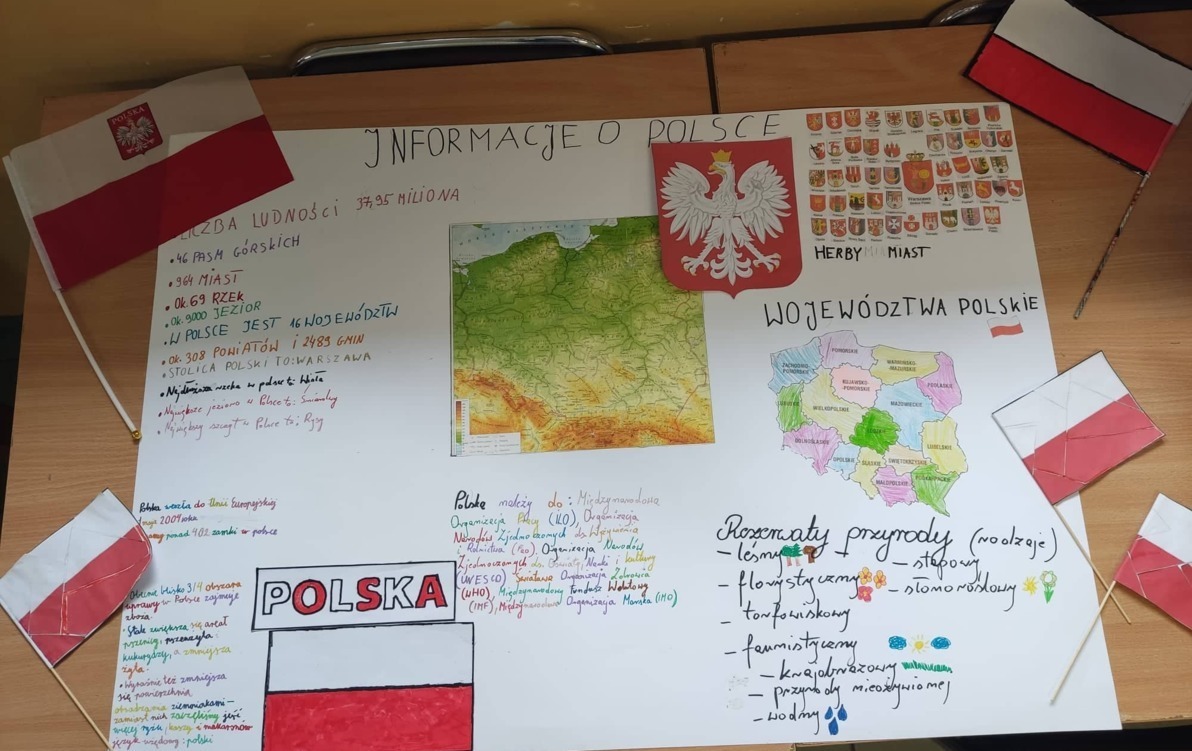 INFORMACJE O POLSCE
POLSKA
LICZBA LUDNOŚCI 37,95 MILIONA
• 46 PASM GÓRSKICH
• 964 MIAST
• Ok. 69 RZEK
• Ok. 9000 JEZIOR
• W POLSCE JEST 16 WOJEWÓDZTW
• Ok. 308 POWIATÓW I 2489 GMIN
• STOLICA POLSKI TO: WARSZAWA
• Najdłuższa rzeka w polsce to: Wisła
• Największe jezioro w Polsce to: Śniardwy
• Najwyższy szczyt w Polsce to: Rysy
HERBY MIAST
WOJEWÓDZTWA POLSKIE
POMORSKIE
ZACHODNIO-
POMORSKIE
WARMIŃSKO-
MAZURSKIE
KUJAWSKO-
POMORSKIE
PODLASKIE
MAZOWIECKIE
LUBUSKIE
WIELKOPOLSKIE
DOLNOŚLĄSKIE
OPOLSKIE
ŚLĄSKIE
ŚWIĘTOKRZYSKIE
LUBELSKIE
MAŁOPOLSKIE
PODKARPACKIE
Polska weszła do Unii Europejskiej
maja 2004 roku
ponad 402 zamki w polsce
Obecnie blisko 3/4 obszaru
uprawy w Polsce zajmuje
zboża.
• Stale zwiększa się areał
pszenicy, pszenżyta
kukurydzy, a zmniejsza
żyta.
• Wyraźnie też zmniejsza
się powierzchnia
ziemniakami –
zamiast nich zaczęliśmy jeść
więcej ryżu, kaszy i makaronów
język urzędowy: polski
Polska należy do: Międzynarodowa
Organizacja Pracy (ILO), Organizacja
Narodów Zjednoczonych ds. Wyżywienia
i Rolnictwa (FAO), Organizacja Narodów
Zjednoczonych ds. Oświaty, Nauki i Kultury
(UNESCO), Światowa Organizacja Zdrowia
(WHO), Międzynarodowy Fundusz Walutowy
(IMF), Międzynarodowa Organizacja Morska (IMO)
POLSKA
Rezerwaty przyrody (rodzaje)
– leśny
– stepowy
– florystyczny
– słonoroślowy
– torfowiskowy
– faunistyczny
– krajobrazowy
– przyrody nieożywionej
– wodny